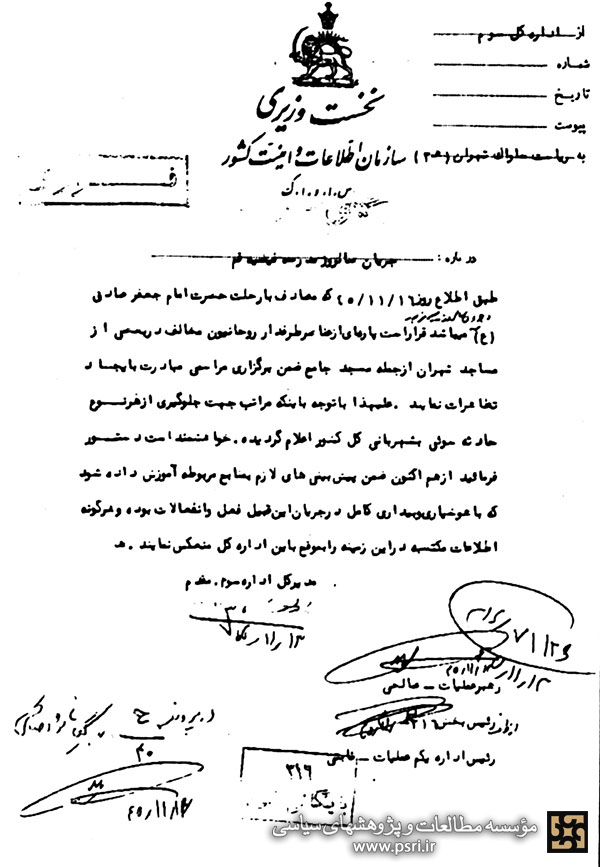 از اداره کل سوم
شماره
تاریخ
پیوست
نخست وزیری
سازمان اطلاعات و امنیت کشور
س.ا.و.ا.ک
به ریاست ساواک تهران
درباره : جریان سالروز مدرسه فیضیه قم
طبق اطلاع روز ۴۵/۱۱/۱۶ که مصادف با رحلت حضرت امام جعفر صادق
(ع) میباشد قرار است پاره‌ای از عناصر طرفدار روحانیون مخالف در بعضی از
مساجد تهران از جمله مسجد جامع ضمن برگزاری مراسمی مبادرت بایجاد
تظاهرات نمایند . علیهذا با توجه باینکه مراتب جهت جلوگیری از هر نوع
حادثه سوئی بشهربانی کل کشور اعلام گردیده . خواهشمند است دستور
فرمائید از هم اکنون ضمن پیش بینی های لازم بمنابع مربوطه آموزش داده شود
که با هوشیاری و بیداری کامل در جریان این قبیل فعل و انفعالات بوده و هرگونه
اطلاعات مکتسبه در این زمینه را بموقع باین اداره کل منعکس نمایند . هـ
مدیر کل اداره سوم . مقدم
۷۱/۲۶
رهبر عملیات - صالحی
رئیس بخش ۳۱۶
رئیس اداره یکم عملیات -
۳۱۶
بایگانی
مؤسسه مطالعات و پژوهشهای سیاسی
www.psri.ir